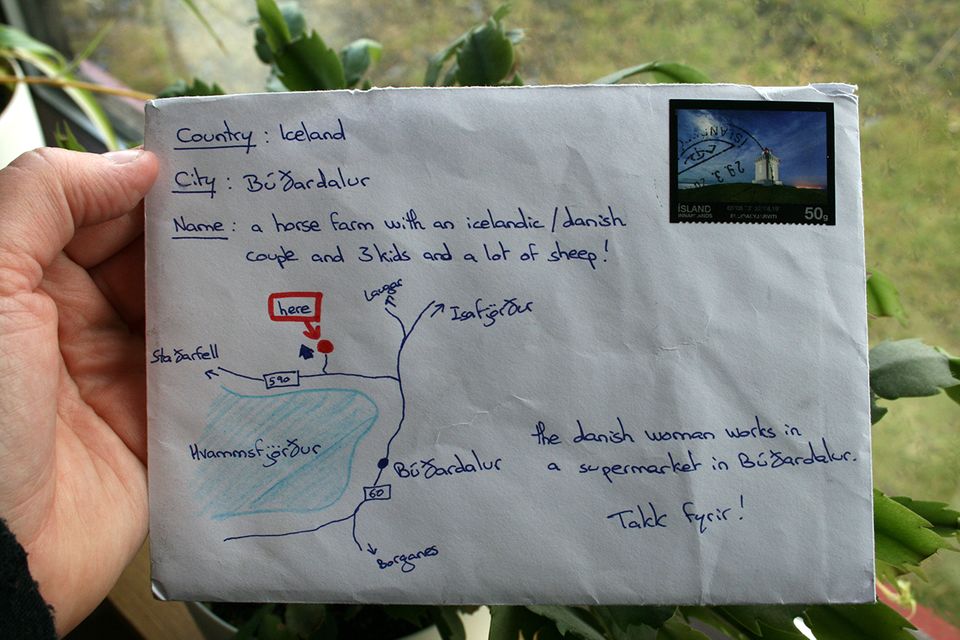 Country : Iceland
City : Búðardalur
Name : a horse farm with an icelandic/danish
couple and 3 kids and a lot of sheep!
ÍSLAND
29.3.
ÍSLAND
INNANLANDS
50g
here
Laugar
Isafjörður
Staðarfell
590
Hvammsfjörður
Búðardalur
60
Borganes
the danish woman works in
a supermarket in Búðardalur.
Takk fyrir!